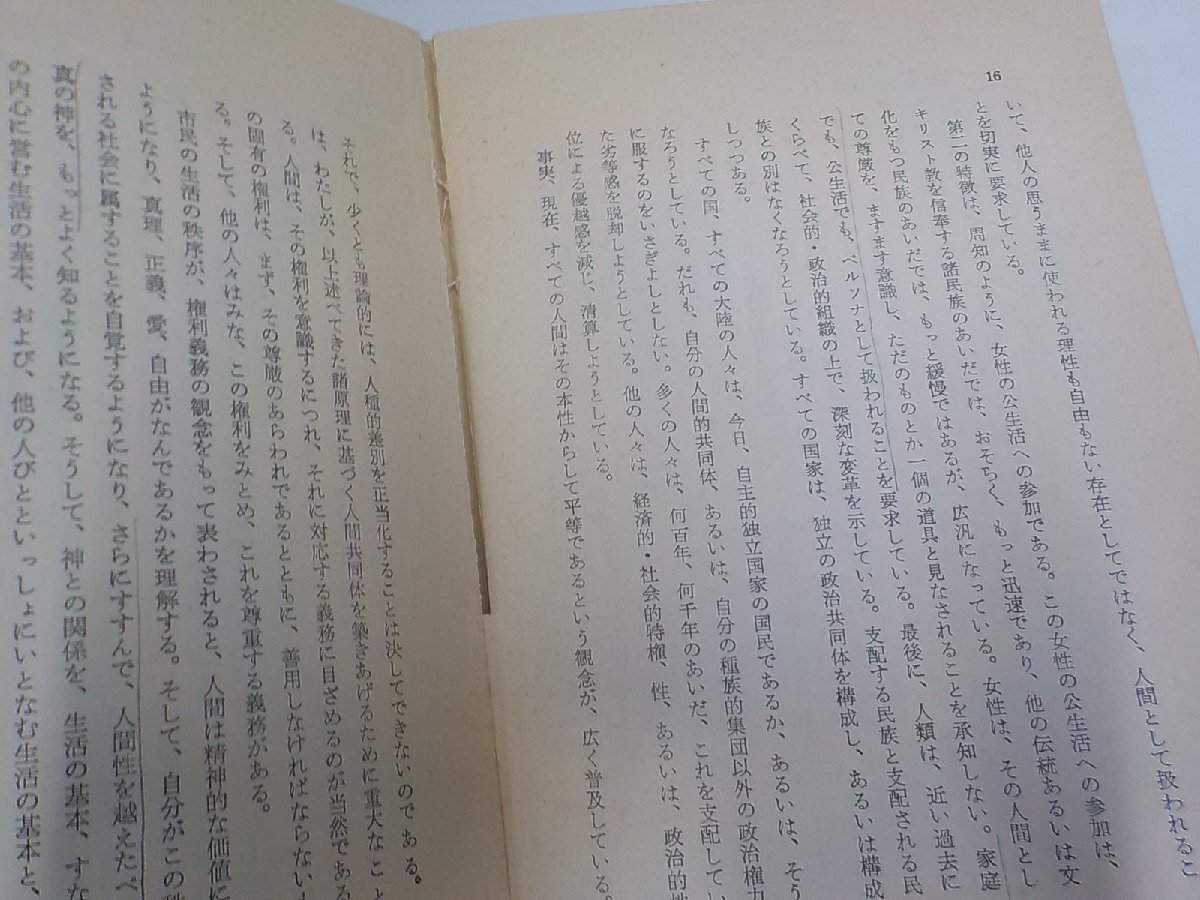 16
いて、他人の思うままに使われる理性も自由もない存在としてではなく、人間として扱われるこ
とを切実に要求している。
第二の特徴は、周知のように、女性の公生活への参加である。この女性の公生活への参加は、
キリスト教を信奉する諸民族のあいだでは、おそらく、もっと迅速であり、他の伝統あるいは文
化をもつ民族のあいだでは、もっと緩慢ではあるが、広汎になっている。女性は、その人間とし
ての尊厳を、ますます意識し、ただのものとか一個の道具と見なされることを承知しない。家庭
でも、公生活でも、ペルソナとして扱われることを要求している。最後に、人類は、近い過去に
くらべて、社会的・政治的組織の上で、深刻な変革を示している。支配する民族と支配される民
族との別はなくなろうとしている。すべての国家は、独立の政治共同体を構成し、あるいは構成
しつつある。
すべての国、すべての大陸の人々は、今日、自主的独立国家の国民であるか、あるいは、そう
なろうとしている。だれも、自分の人間的共同体、あるいは、自分の種族的集団以外の政治権力
に服するのをいさぎよしとしない。多くの人々は、何百年、何千年のあいだ、これを支配してい
た劣等感を脱却しようとしている。他の人々は、経済的・社会的特権、性、あるいは、政治的地
位による優越感を減じ、清算しようとしている。
事実、現在、すべての人間はその本性からして平等であるという観念が、広く普及している。
それで、少くとも理論的には、人種的差別を正当化することは決してできないのである。
は、わたしが、以上述べてきた諸原理に基づく人間共同体を築きあげるために重大なこと
る。人間は、その権利を意識するにつれ、それに対応する義務に目ざめるのが当然である
の固有の権利は、まず、その尊厳のあらわれであるとともに、善用しなければならない
る。そして、他の人々はみな、この権利をみとめ、これを尊重する義務がある。
市民の生活の秩序が、権利義務の観念をもって表わされると、人間は精神的な価値に
ようになり、真理、正義、愛、自由がなんであるかを理解する。そして、自分がこの
される社会に属することを自覚するようになり、さらにすすんで、人間性を越えたペ
真の神を、もっとよく知るようになる。そうして、神との関係を、生活の基本、すな
の内心に営む生活の基本、および、他の人びとといっしょにいとなむ生活の基本と、